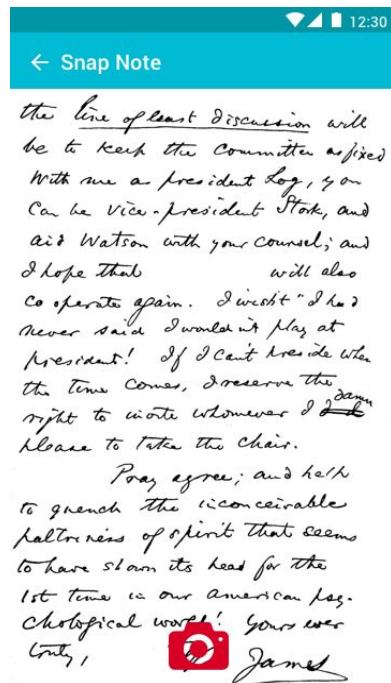 12:30
Snap Note
the line of least discussion will
be to keep the committee as fixed
With me as president Log, you
Can be Vice-president Stork, and
aid Watson with your counsel; and
I hope that will also
co operate again. I wisht "I had
never said I wouldn't play at
president! If I can't preside when
the time comes, I reserve the
right to invite whomever I damn
please to take the chair.
Pray agree; and help
to quench the inconceivable
paltriness of spirit that seems
to have shown its head for the
1st time in our american psy-
chological world! Yours ever
truly,
James